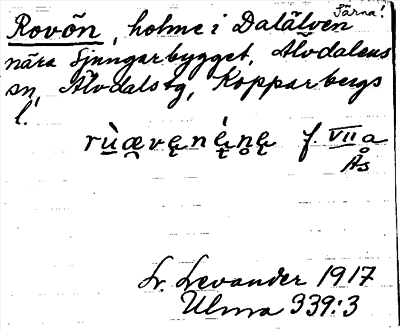 Rovön, holme i Dalälven Särna!
nära Sjungarbygget, Älvdalens
sn, Älvdals tg, Kopparbergs
l.
rùævęnénę f. VII a
Ås
Lr. Levander 1917
Ulma 339:3